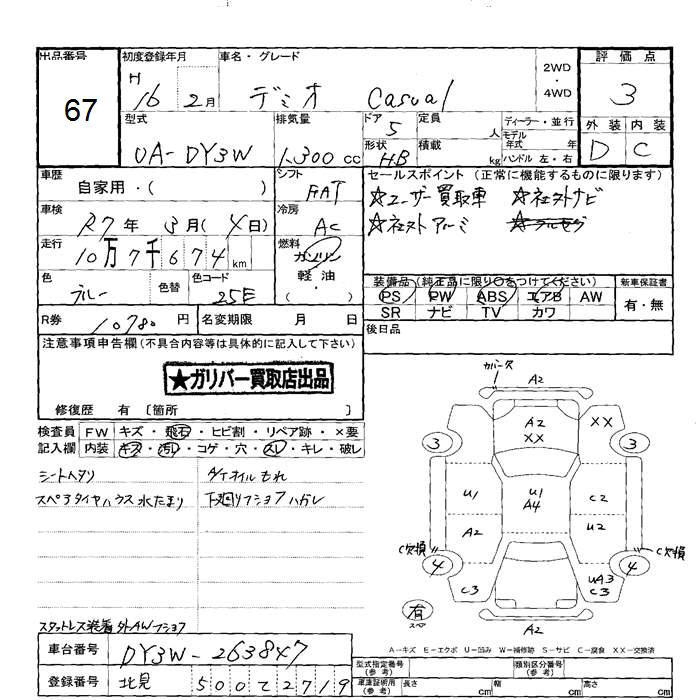 出品番号 初度登録年月 車名・グレード 評価点
67
H16 2月 デミオ Casual 2WD・4WD 3
型式 排気量 ドア 定員 ディーラー・並行 外装 内装
UA-DY3W 1,300cc 5 人 モデル年式 年 D C
形状 積載 ハンドル 左・右
HB kg
車歴 シフト セールスポイント(正常に機能するものに限ります)
自家用・( ) FAT ☆ユーザー買取車 ☆社外ナビ
車検 冷房 ☆社外アルミ
R7年 3月(4日) AC
走行 燃料
10万7千674km ガソリン
色 色替 色コード 軽油
ブルー 25E ・( )
装備品(純正品に限り○をつけてください) 新車保証書
PS PW ABS エアB AW 有・無
SR ナビ TV カワ
R券 10780円 名変期限 月 日 後日品
注意事項申告欄(不具合内容等は具体的に記入して下さい)
★ガリバー買取店出品
修復歴 有 〔箇所 〕
検査員 FW キズ・飛石・ヒビ割・リペア跡・×要
記入欄 内装 キズ・汚レ・コゲ・穴・スレ・キレ・破レ
シートヘタリ
スペアタイヤハウス水たまり
オイルもれ
下廻りフショクハガレ
スタットレス装着 外AWフショク
車台番号 DY3W-263847
登録番号 北見 500 て 2719
カバー欠 A2
A2 XX XX
3 3
U1 U1 A4 C2
A2 U2
C欠損 C欠損
4 4
C3 UA3 C3
有 スペ
A2
A-キズ E-エクボ U-凹み W-補修跡 S-サビ C-腐食 XX-交換済
型式指定番号(参考) 類別区分番号(参考)
車庫証明用(参考) 長さ cm 幅 cm 高さ cm